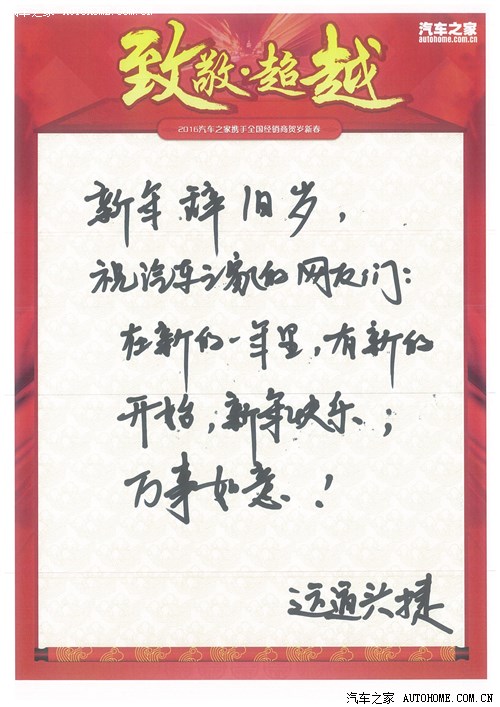 汽车之家
autohome.com.cn
致敬·超越
2016汽车之家携手全国经销商贺岁新春
新年辞旧岁，
祝汽车之家的网友们：
在新的一年里，有新的
开始，新年快乐；
万事如意！
远通兴捷
汽车之家 AUTOHOME.COM.CN